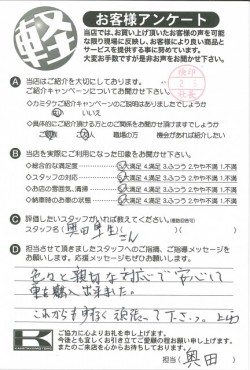 軽
お客様アンケート
当店では、お買い上げ頂いたお客様の声を可能
な限り現場に反映し、お客様により良い商品と
サービスを提供する事に努めています。
大変お手数ですが是非お声をお聞かせ下さい。
検印
社長
A 当店はご紹介を大切にしております。
ご紹介キャンペーンについてお聞かせ下さい。
◇カミタケご紹介キャンペーンのご説明はありましたでしょうか
はい いいえ
◇具体的にご紹介頂ける方とのご関係をお聞かせ頂けますでしょうか
職場の方 機会があれば紹介したい
B 当店を実際にご利用になった印象をお聞かせ下さい。
◇総合的な満足度 5.大満足 4.満足 3.ふつう 2.やや不満 1.不満
◇スタッフの対応 5.大満足 4.満足 3.ふつう 2.やや不満 1.不満
◇お店の雰囲気、清掃 5.大満足 4.満足 3.ふつう 2.やや不満 1.不満
◇納車時のお車の状態 5.大満足 4.満足 3.ふつう 2.やや不満 1.不満
C 評価したいスタッフがいれば教えてください。(複数回答可)
スタッフ名( 奥田 さん )
D 担当させて頂きましたスタッフへのご指摘、ご指導メッセージを
お願いします。応援メッセージもぜひお願いします。
色々と親切な対応で安心して
車を購入出来ました。
これからも頑張って下さい。
ご協力に心よりお礼を申し上げます。
今後とも宜しくお引き立てご愛顧の程お願い申し上げます。
またのご来店を心からお待ちしております。
担当( 奥田 )